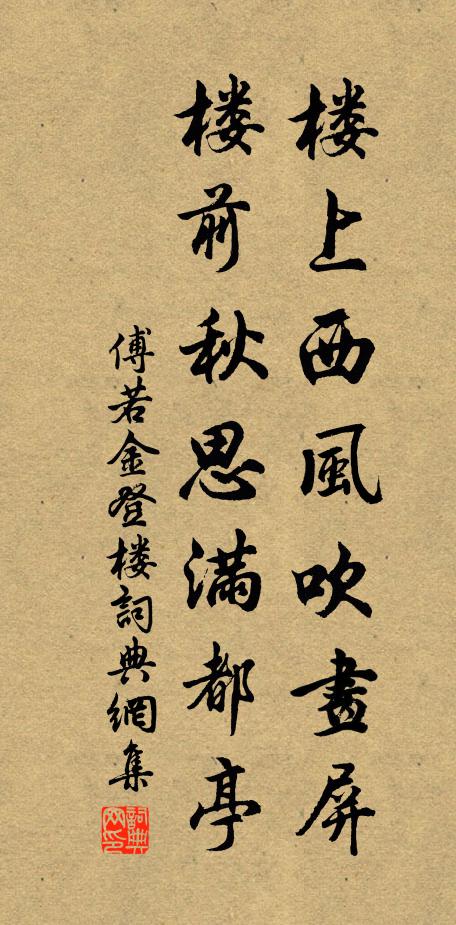 楼上西風吹畫屏
楼前秋思滿都亭
傅若金登楼詞典網集
詞典网印